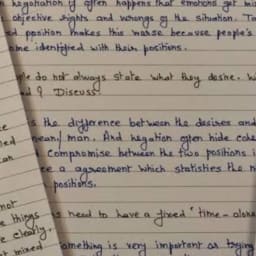 n negotiation if often happens that emotions get mi
objective rights and wrongs of the situation. To
ed position makes this worse because people's
ome identified with their positions.
le do not always state what they desire.
d ? Discuss
s the difference between the desires and
mean/man. And negation often hide
compromise between the two positions i
e a agreement which statisties the
positions.
not
e things
e clearly.
ot mixed
s need to have a fixed "time-
omething is very important or trying